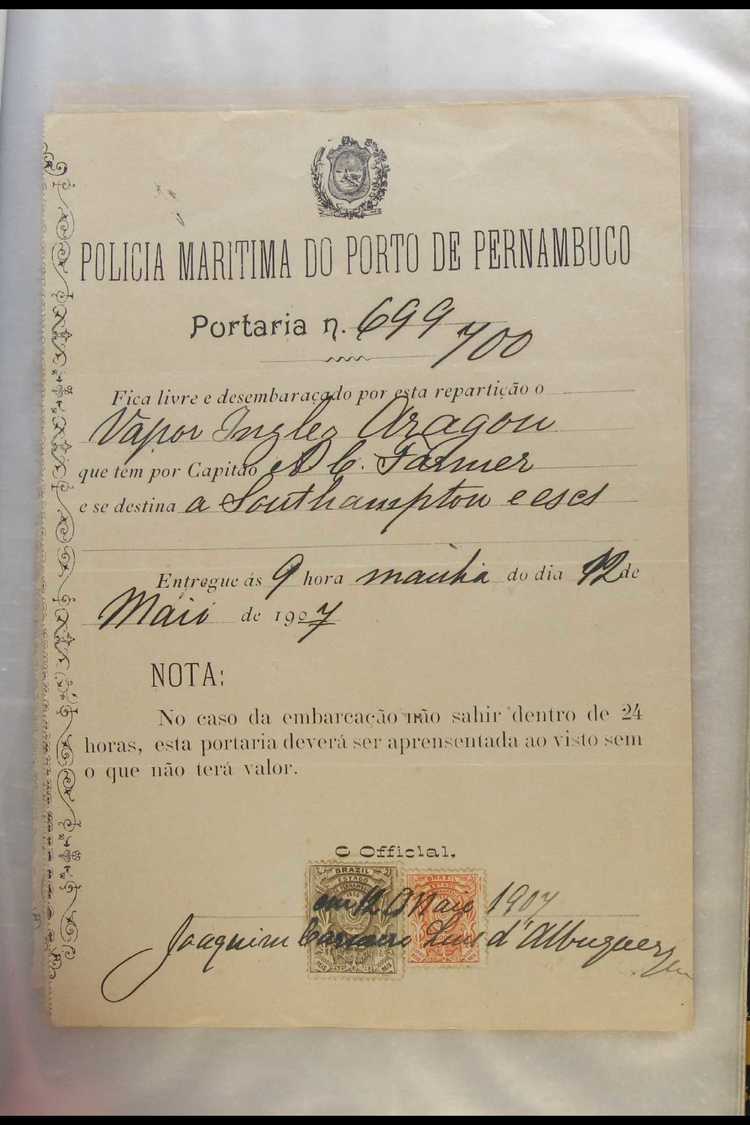 POLICIA MARITIMA DO PORTO DE PERNAMBUCO
Portaria n. 699
700
Fica livre e desembaraçado por esta repartição o
Vapor Inglez Aragon
que tem por Capitão A C. Farmer
e se destina a Southampton e escs
Entregue ás 9 hora manhã do dia 12 de
Maio de 1907
NOTA:
No caso da embarcação não sahir dentro de 24
horas, esta portaria deverá ser aprensentada ao visto sem
o que não terá valor.
O Official.
BRAZIL
ESTADO
BRAZIL
ESTADO
em 12 Maio 1907
Joaquim Carneiro Lins d'Albuquerque